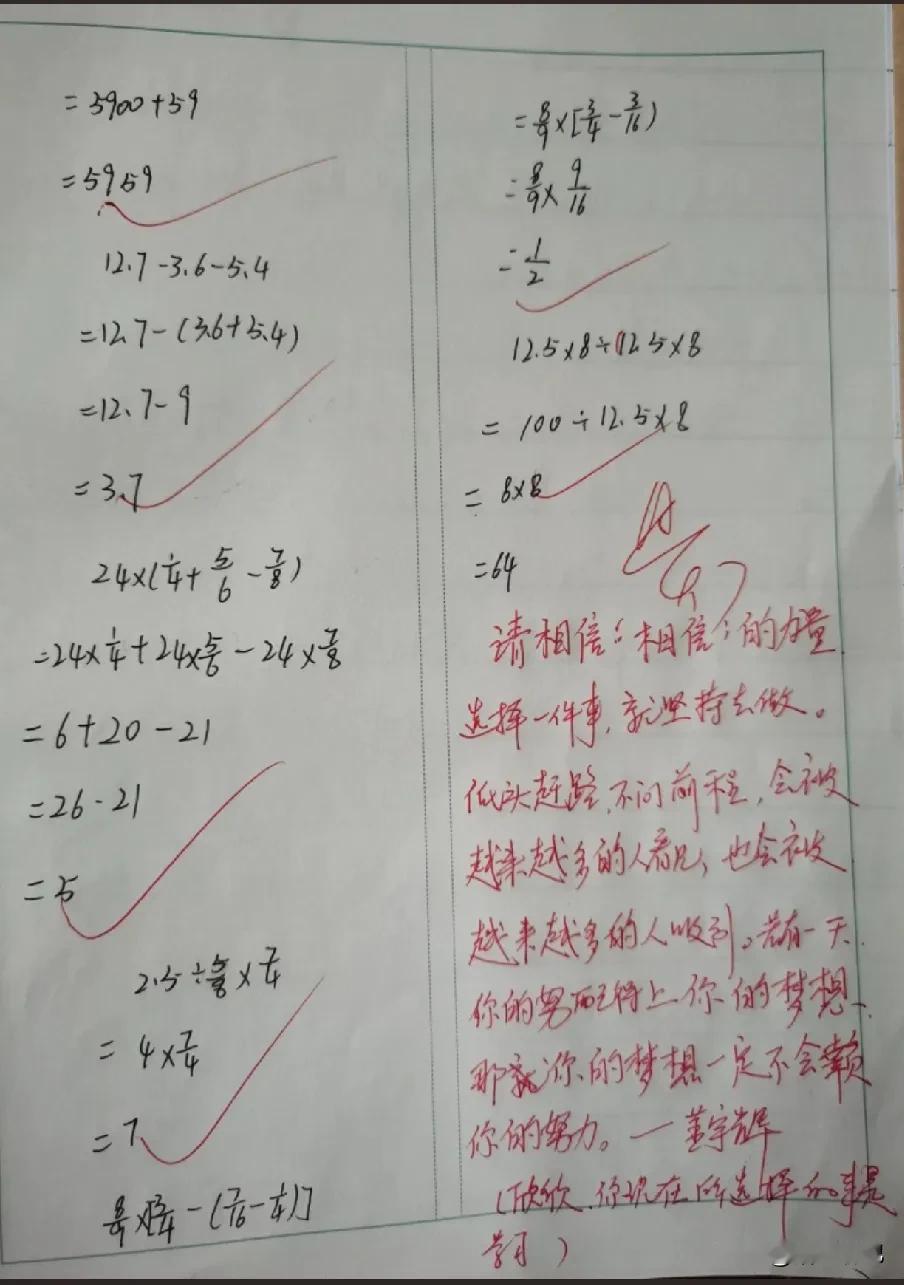 = 5900+59
= 5959
12.7-3.6-5.4
=12.7-(3.6+5.4)
=12.7-9
=3.7
24×(1/4+5/6-7/8)
=24×1/4+24×5/6-24×7/8
=6+20-21
=26-21
=5
2.5÷5/8×7/4
=4×7/4
=7
8/9×[3/4-(7/16-1/4)]
=8/9×[3/4-3/16)
=8/9×9/16
=1/2
12.5×8÷12.5×8
=100÷12.5×8
=8×8
=64
请相信:相信:的力量
选择一件事,就坚持去做。
低头赶路,不问前程,会被
越来越多的人看见,也会被
越来越多的人吸引。若有一天
你的努配得上你的梦想、
那就你的梦想一定不会辜负
你的努力。—董宇辉
(欣欣,你现在所选择的事是
学习)